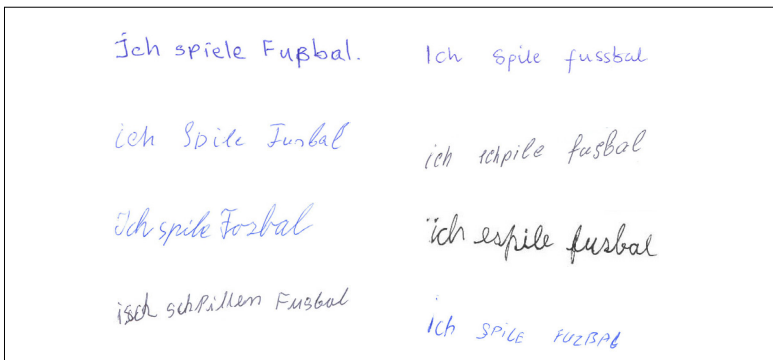 Ich spiele Fußbal.
ich Spile Fusbal
Ich spile Fosbal
isch schpillen Fusbal
Ich spile fussbal
ich schpile fusbal
ich espile fusbal
ich SPILE FUZBAL